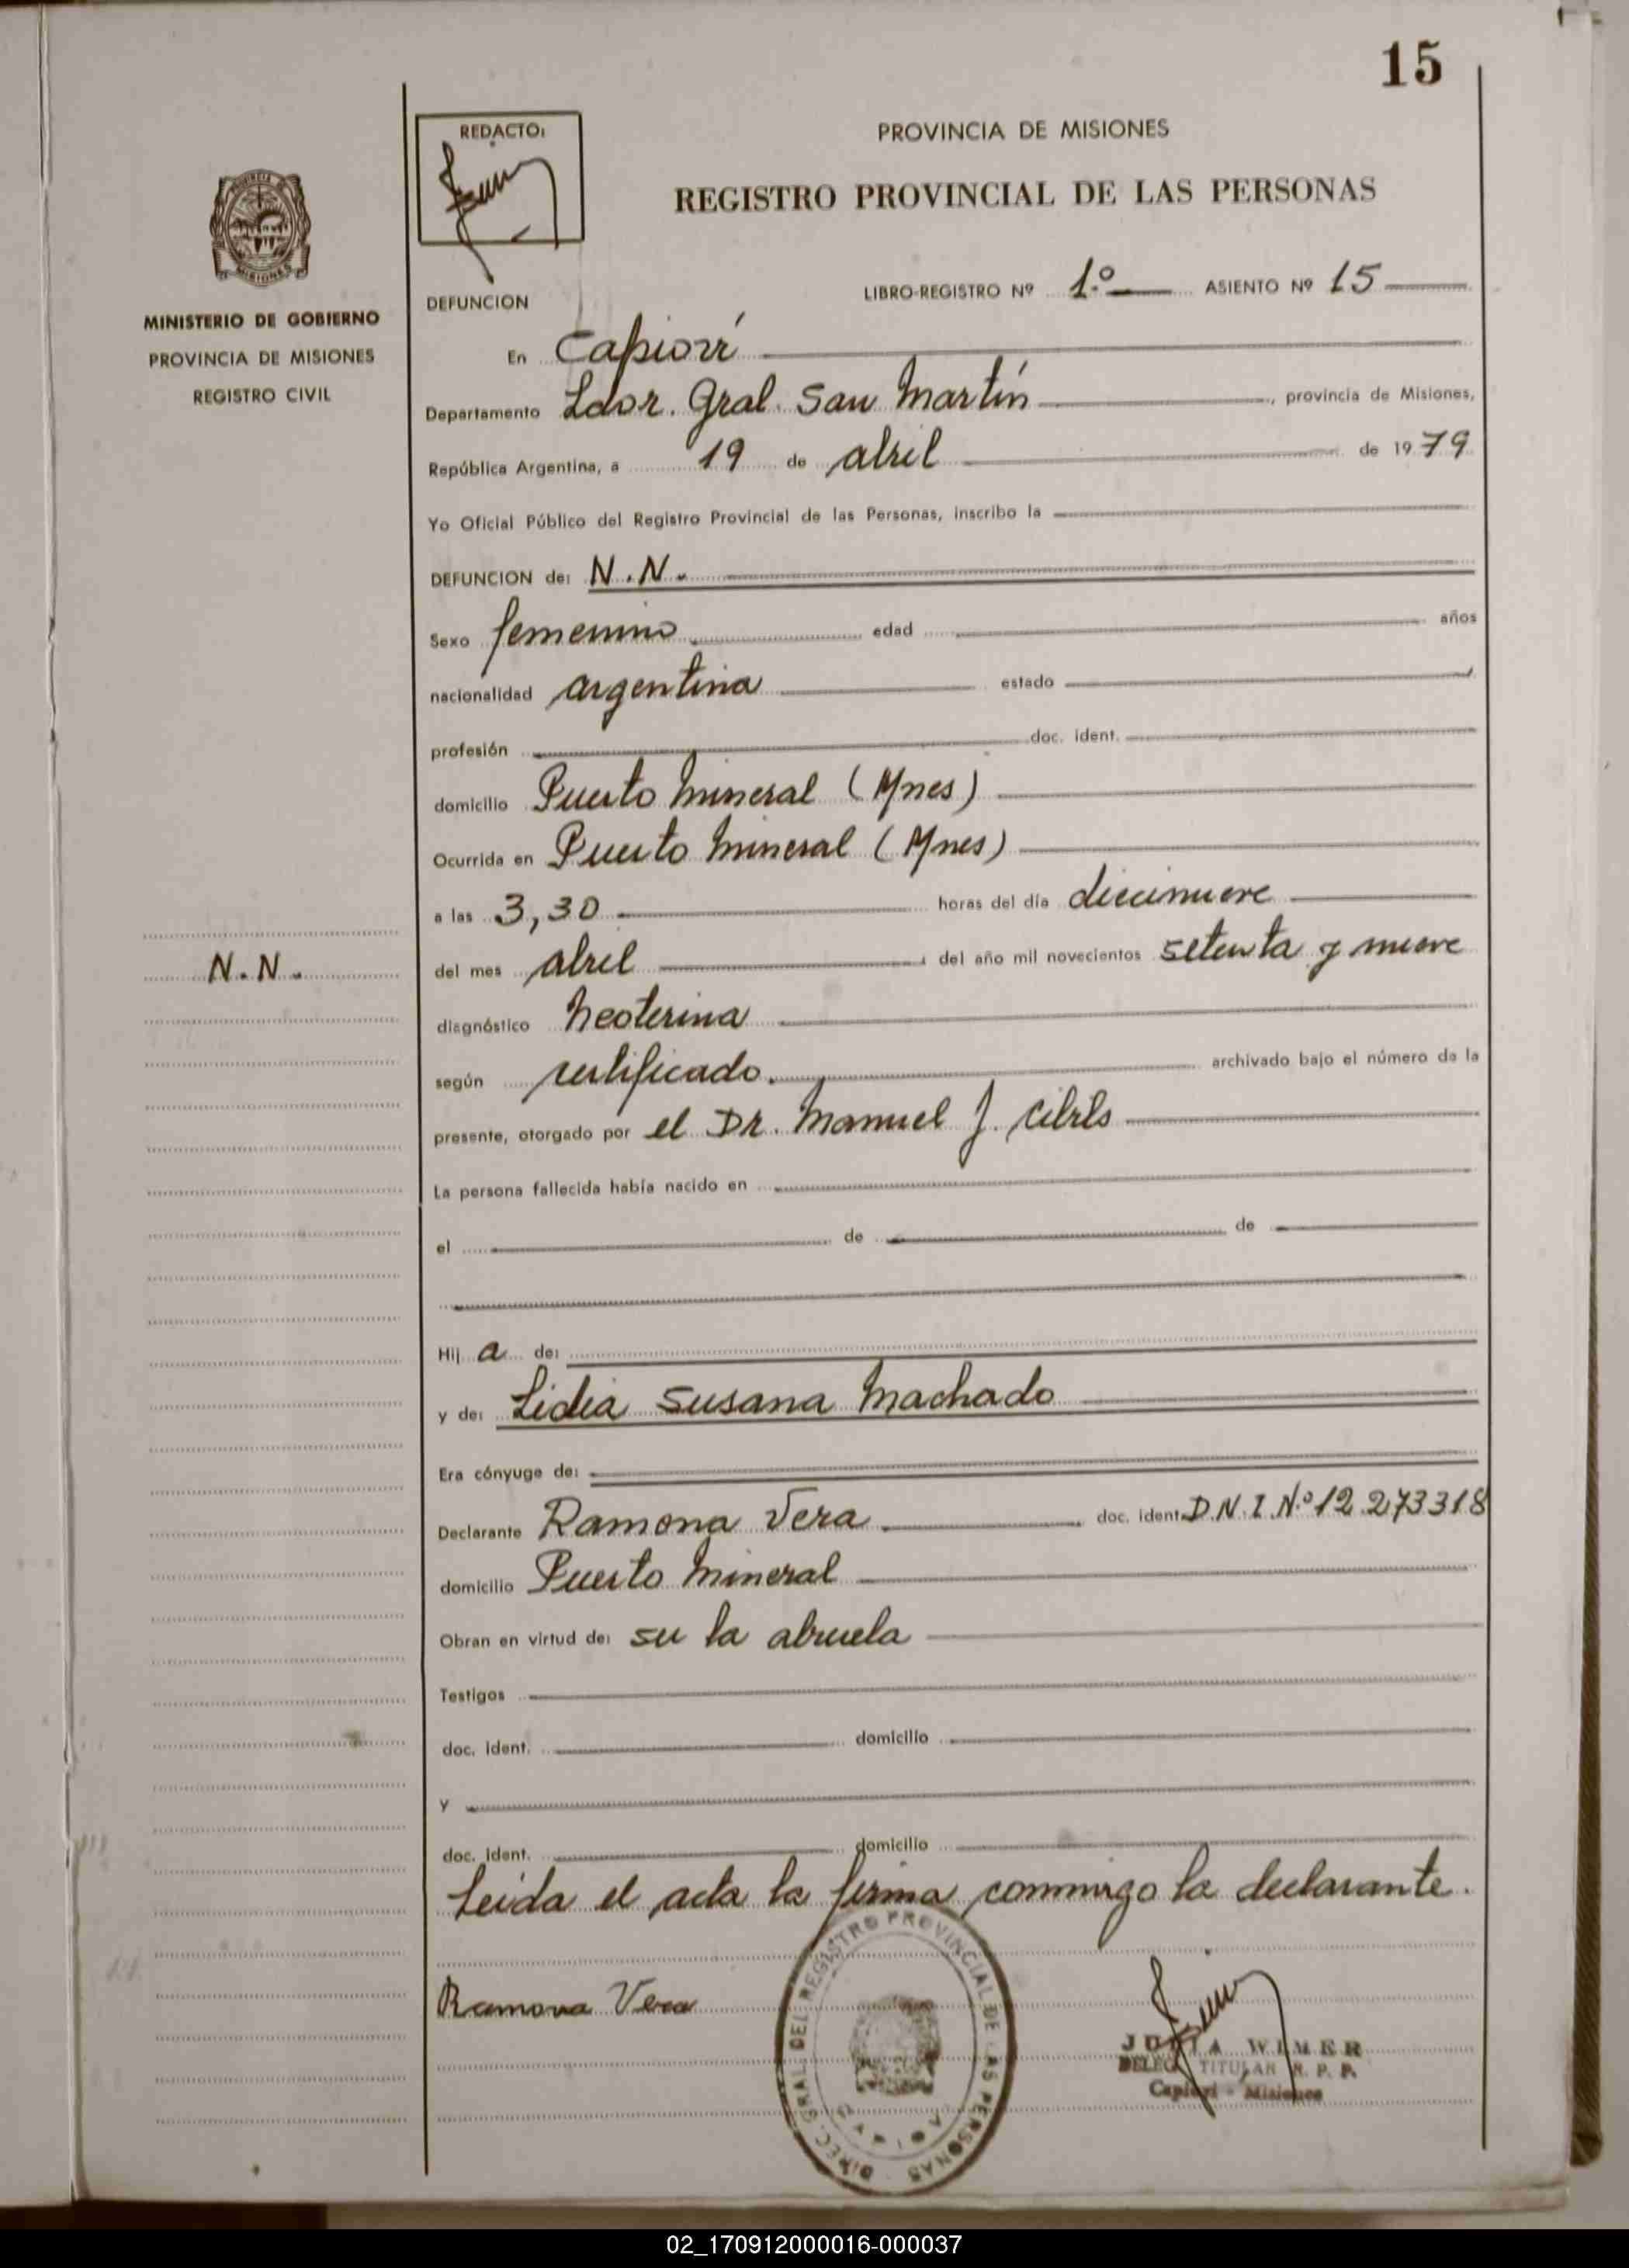 15
PROVINCIA DE MISIONES
REGISTRO PROVINCIAL DE LAS PERSONAS
REDACTO:
MINISTERIO DE GOBIERNO
PROVINCIA DE MISIONES
REGISTRO CIVIL
LIBRO-REGISTRO Nº 1.º ASIENTO Nº 15
DEFUNCION
En Capioví
Departamento Ldor. Gral. San Martín, provincia de Misiones,
República Argentina, a 19 de abril de 1979
Yo Oficial Público del Registro Provincial de las Personas, inscribo la
DEFUNCION de: N.N.
Sexo femenino edad años
nacionalidad argentina estado
profesión doc. ident.
domicilio Puerto Mineral (Mnes)
Ocurrida en Puerto Mineral (Mnes)
a las 3,30 horas del día diecinueve
N.N.
del mes abril del año mil novecientos setenta y nueve
diagnóstico
según certificado. archivado bajo el número de la
presente, otorgado por el Dr. Manuel J. Cibils
La persona fallecida había nacido en
el de de
Hij a de:
y de: Lidia Susana Machado
Era cónyuge de:
Declarante Ramona Vera doc. ident. D.N.I.N.º 12.273318
domicilio Puerto Mineral
Obran en virtud de: su la abuela
Testigos
doc. ident. domicilio
y
doc. ident. domicilio
Leída el acta la firma conmigo la declarante.
Ramona Vera
DIREC. GRAL. DEL REGISTRO PROVINCIAL DE LAS PERSONAS
WIMER
DELEG. TITULAR R. P. P.
Capioví - Misiones
02_170912000016-000037